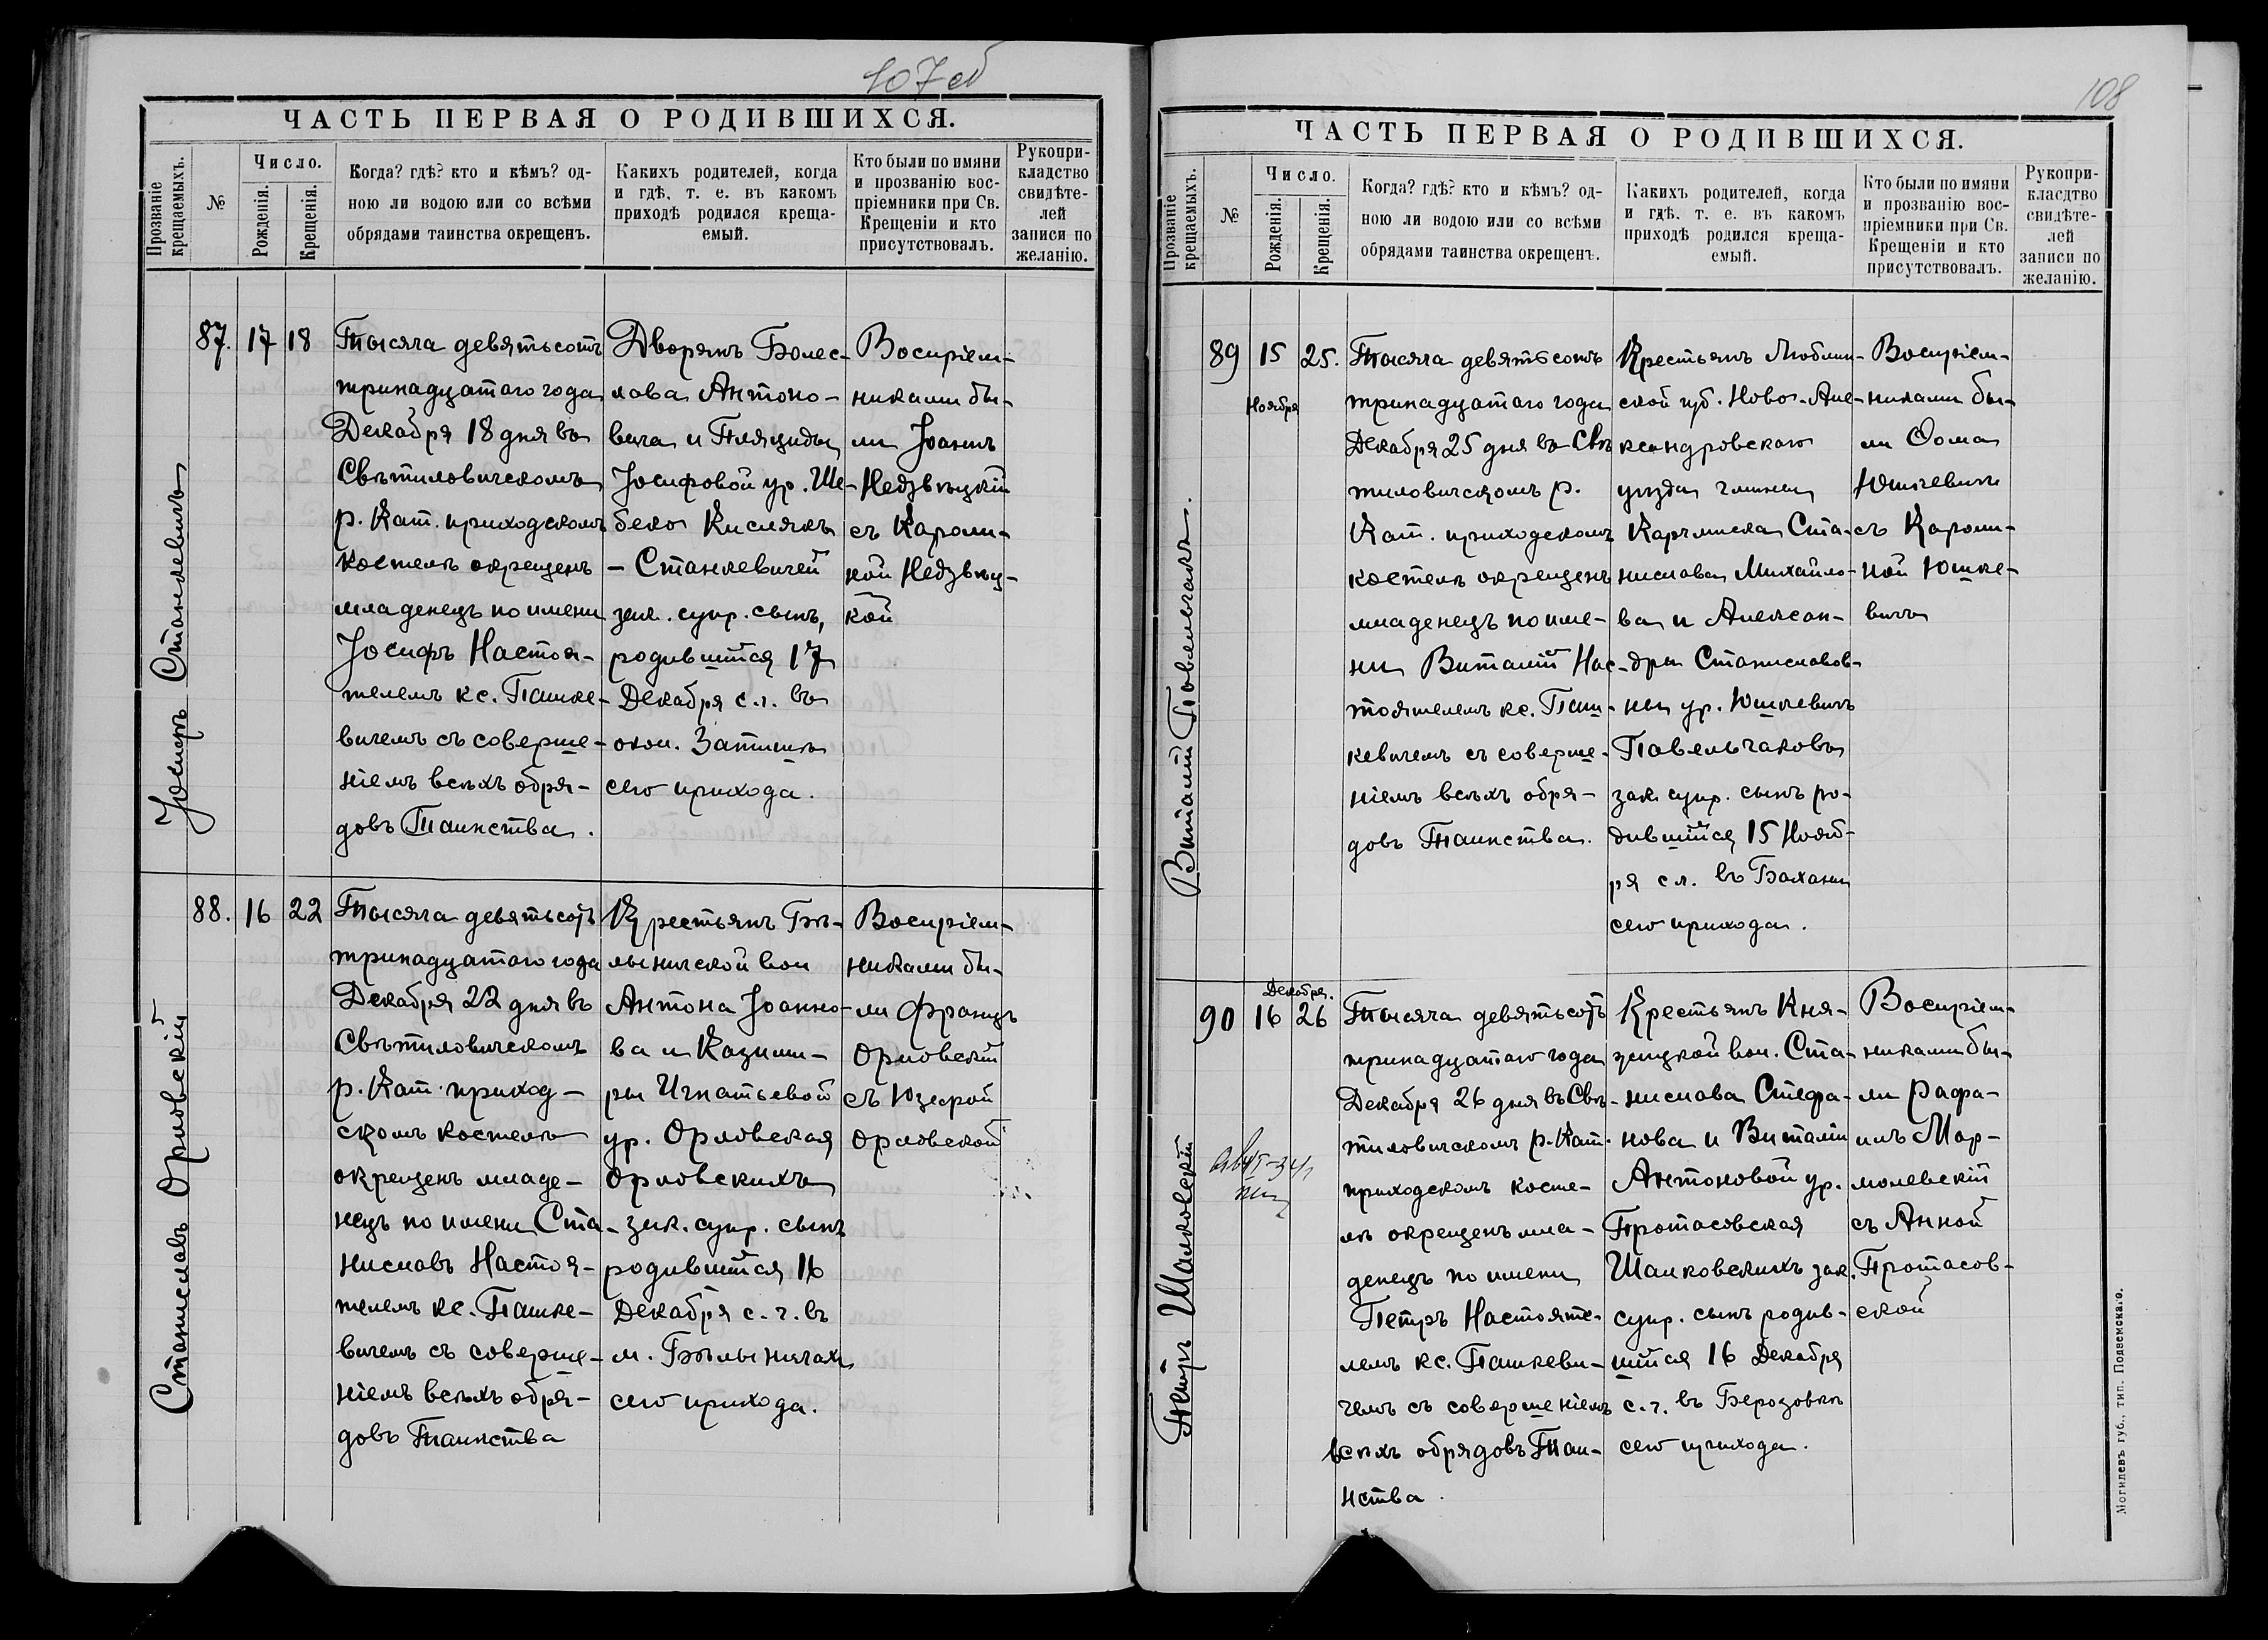 107 об
ЧАСТЬ ПЕРВАЯ О РОДИВШИХСЯ.
Прозваніе крещаемыхъ.
№
Число.
Рожденія.
Крещенія.
Когда? гдѣ? кто и кѣмъ? од-
ною ли водою или со всѣми
обрядами таинства окрещенъ.
Какихъ родителей, когда
и гдѣ, т. е. въ какомъ
приходѣ родился креща-
емый.
Кто были по имяни
и прозванію вос-
пріемники при Св.
Крещеніи и кто
присутствовалъ.
Рукопри-
кладство
свидѣте-
лей
записи по
желанію.
Іосифъ Станкевичъ
87.
17
18
Тысяча девятьсотъ
тринадцатаго года
Декабря 18 дня въ
Свѣтиловическомъ
р. Кат. приходскомъ
костелѣ окрещенъ
младенецъ по имени
Іосифъ Настоя-
телемъ кс. Пашке-
вичемъ съ соверше-
ніемъ всѣхъ обря-
довъ Таинства.
Дворянъ Болес-
лава Антоно-
вича и Пляциды
Іосифовой ур. Ше-
беко Кислякъ
- Станкевичей
зак. супр. сынъ,
родившійся 17
Декабря с. г. въ
окол. Затишьѣ
сего прихода.
Воспріем-
никами бы-
ли Іоаннъ
Недзвѣцкій
съ Кароли-
ной Недзвѣц-
кой
Станиславъ Орловскій
88.
16
22
Тысяча девятьсотъ
тринадцатаго года
Декабря 22 дня въ
Свѣтиловическомъ
р. Кат. приход-
скомъ костелѣ
окрещенъ младе-
нецъ по имени Ста-
ниславъ Настоя-
телемъ кс. Пашке-
вичемъ съ соверше-
ніемъ всѣхъ обря-
довъ Таинства
Крестьянъ Бѣ-
лыничской вол
Антона Іоанно-
ва и Казими-
ры Игнатьевой
ур. Орловская
Орловскихъ
зак. супр. сынъ
родившійся 16
Декабря с. г. въ
м. Бѣлыничахъ
сего прихода.
Воспріем-
никами бы-
ли Францъ
Орловскій
съ Юзефой
Орловской
108
ЧАСТЬ ПЕРВАЯ О РОДИВШИХСЯ.
Прозваніе крещаемыхъ.
№
Число.
Рожденія.
Крещенія.
Когда? гдѣ? кто и кѣмъ? од-
ною ли водою или со всѣми
обрядами таинства окрещенъ.
Какихъ родителей, когда
и гдѣ. т. е. въ какомъ
приходѣ родился креща-
емый.
Кто были по имяни
и прозванію вос-
пріемники при Св.
Крещеніи и кто
присутствовалъ.
Рукопри-
класдтво
свидѣте-
лей
записи по
желанію.
Виталій Павельчакъ.
89
15
Ноября
25.
Тысяча девятьсотъ
тринадцатаго года
Декабря 25 дня въ Свѣ
тиловическомъ р.
Кат. приходскомъ
костелѣ окрещенъ
младенецъ по име-
ни Виталій Нас-
тоятелемъ кс. Паш-
кевичемъ съ соверше-
ніемъ всѣхъ обря-
довъ Таинства.
Крестьянъ Люблин-
ской губ. Ново-Але-
ксандровскаго
уѣзда гмины
Карчмиска Ста-
нислава Михайло-
ва и Алексан-
дры Станиславов-
ны ур. Юшкевичъ
Павельчаковъ
зак. супр. сынъ ро-
дившійся 15 Нояб-
ря с.г. въ Бахани
сего прихода.
Воспріем-
никами бы-
ли Ѳома
Юшкевичъ
съ Кароли-
ной Юшке-
вичъ
Петръ Шалковскій
90
Декабря.
16
26
Тысяча девятьсотъ
тринадцатаго года
Декабря 26 дня въ Свѣ-
тиловическомъ р. Кат.
приходскомъ косте-
лѣ окрещенъ мла-
денецъ по имени
Петръ Настояте-
лемъ кс. Пашкеви-
чемъ съ совершеніемъ
всѣхъ обрядовъ Таи-
нства.
Крестьянъ Кня-
зицкой вол. Ста-
нислава Стефа-
нова и Виталіи
Антоновой ур.
Протасовская
Шалковскихъ зак.
супр. сынъ родив-
шійся 16 Декабря
с. г. въ Березовкѣ
сего прихода.
Воспріем-
никами бы-
ли Рафа-
илъ Мар-
молевскій
съ Анной
Протасов-
ской
Могилевъ губ., тип. Подземскаго.